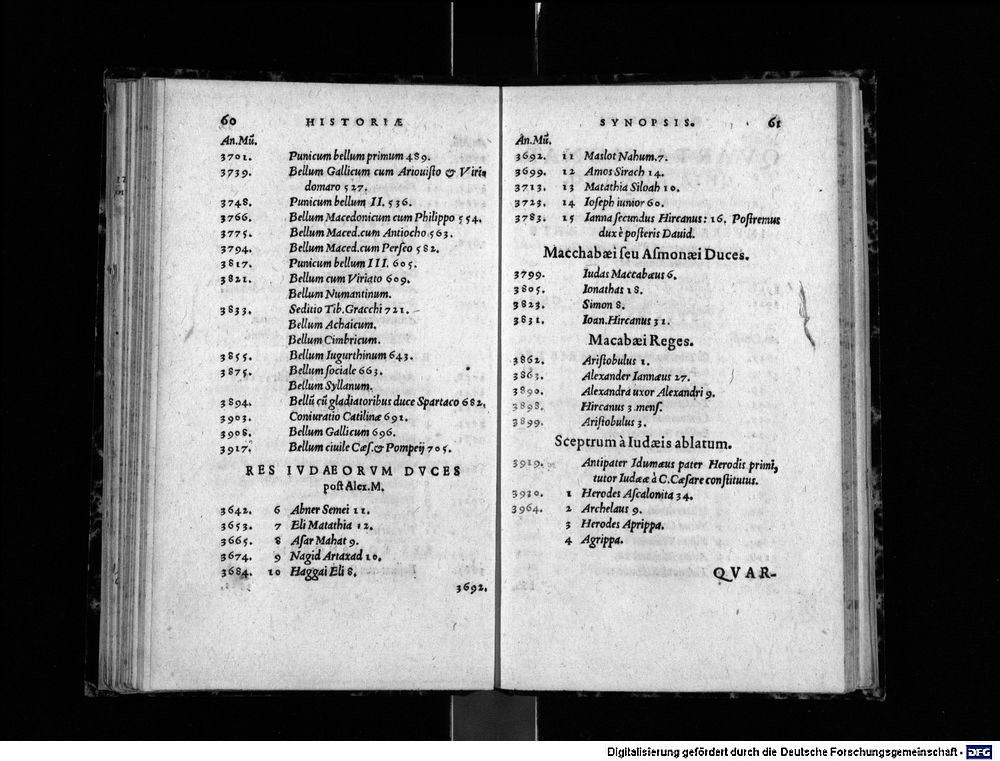 60 HISTORIÆ
An.Mũ.
3701. Punicum bellum primum 489.
3739. Bellum Gallicum cum Ariouiſto & Viri-
domaro 527.
3748. Punicum bellum II. 536.
3766. Bellum Macedonicum cum Philippo 554.
3775. Bellum Maced.cum Antiocho 563.
3794. Bellum Maced.cum Perſeo 582.
3817. Punicum bellum III. 605.
3821. Bellum cum Viriato 609.
Bellum Numantinum.
3833. Seditio Tib.Gracchi 721.
Bellum Achaicum.
Bellum Cimbricum.
3855. Bellum Iugurthinum 643.
3875. Bellum ſociale 663.
Bellum Syllanum.
3894. Bellũ cũ gladiatoribus duce Spartaco 682.
3903. Coniuratio Catilinæ 691.
3908. Bellum Gallicum 696.
3917. Bellum ciuile Cæſ.& Pompeij 705.
RES IVDAEORVM DVCES
poſt Alex.M.
3642. 6 Abner Semei 11.
3653. 7 Eli Matathia 12.
3665. 8 Aſar Mahat 9.
3674. 9 Nagid Artaxad 10.
3684. 10 Haggai Eli 8.
3692.
SYNOPSIS. 61
An.Mũ.
3692. 11 Maslot Nahum.7.
3699. 12 Amos Sirach 14.
3713. 13 Matathia Siloah 10.
3723. 14 Ioſeph iunior 60.
3783. 15 Ianna ſecundus Hircanus: 16. Poſtremus
dux è poſteris Dauid.
Macchabæi ſeu Aſmonæi Duces.
3799. Iudas Maccabæus 6.
3805. Ionathas 18.
3823. Simon 8.
3831. Ioan.Hircanus 31.
Macabæi Reges.
3862. Ariſtobulus 1.
3863. Alexander Iannæus 27.
3890. Alexandra uxor Alexandri 9.
3898. Hircanus 3 menſ.
3899. Ariſtobulus 3.
Sceptrum à Iudæis ablatum.
3919. Antipater Idumæus pater Herodis primi,
tutor Iudææ à C.Cæſare conſtitutus.
3930. 1 Herodes Aſcalonita 34.
3964. 2 Archelaus 9.
3 Herodes Aprippa.
4 Agrippa.
QVAR-
Digitalisierung gefördert durch die Deutsche Forschungsgemeinschaft - DFG